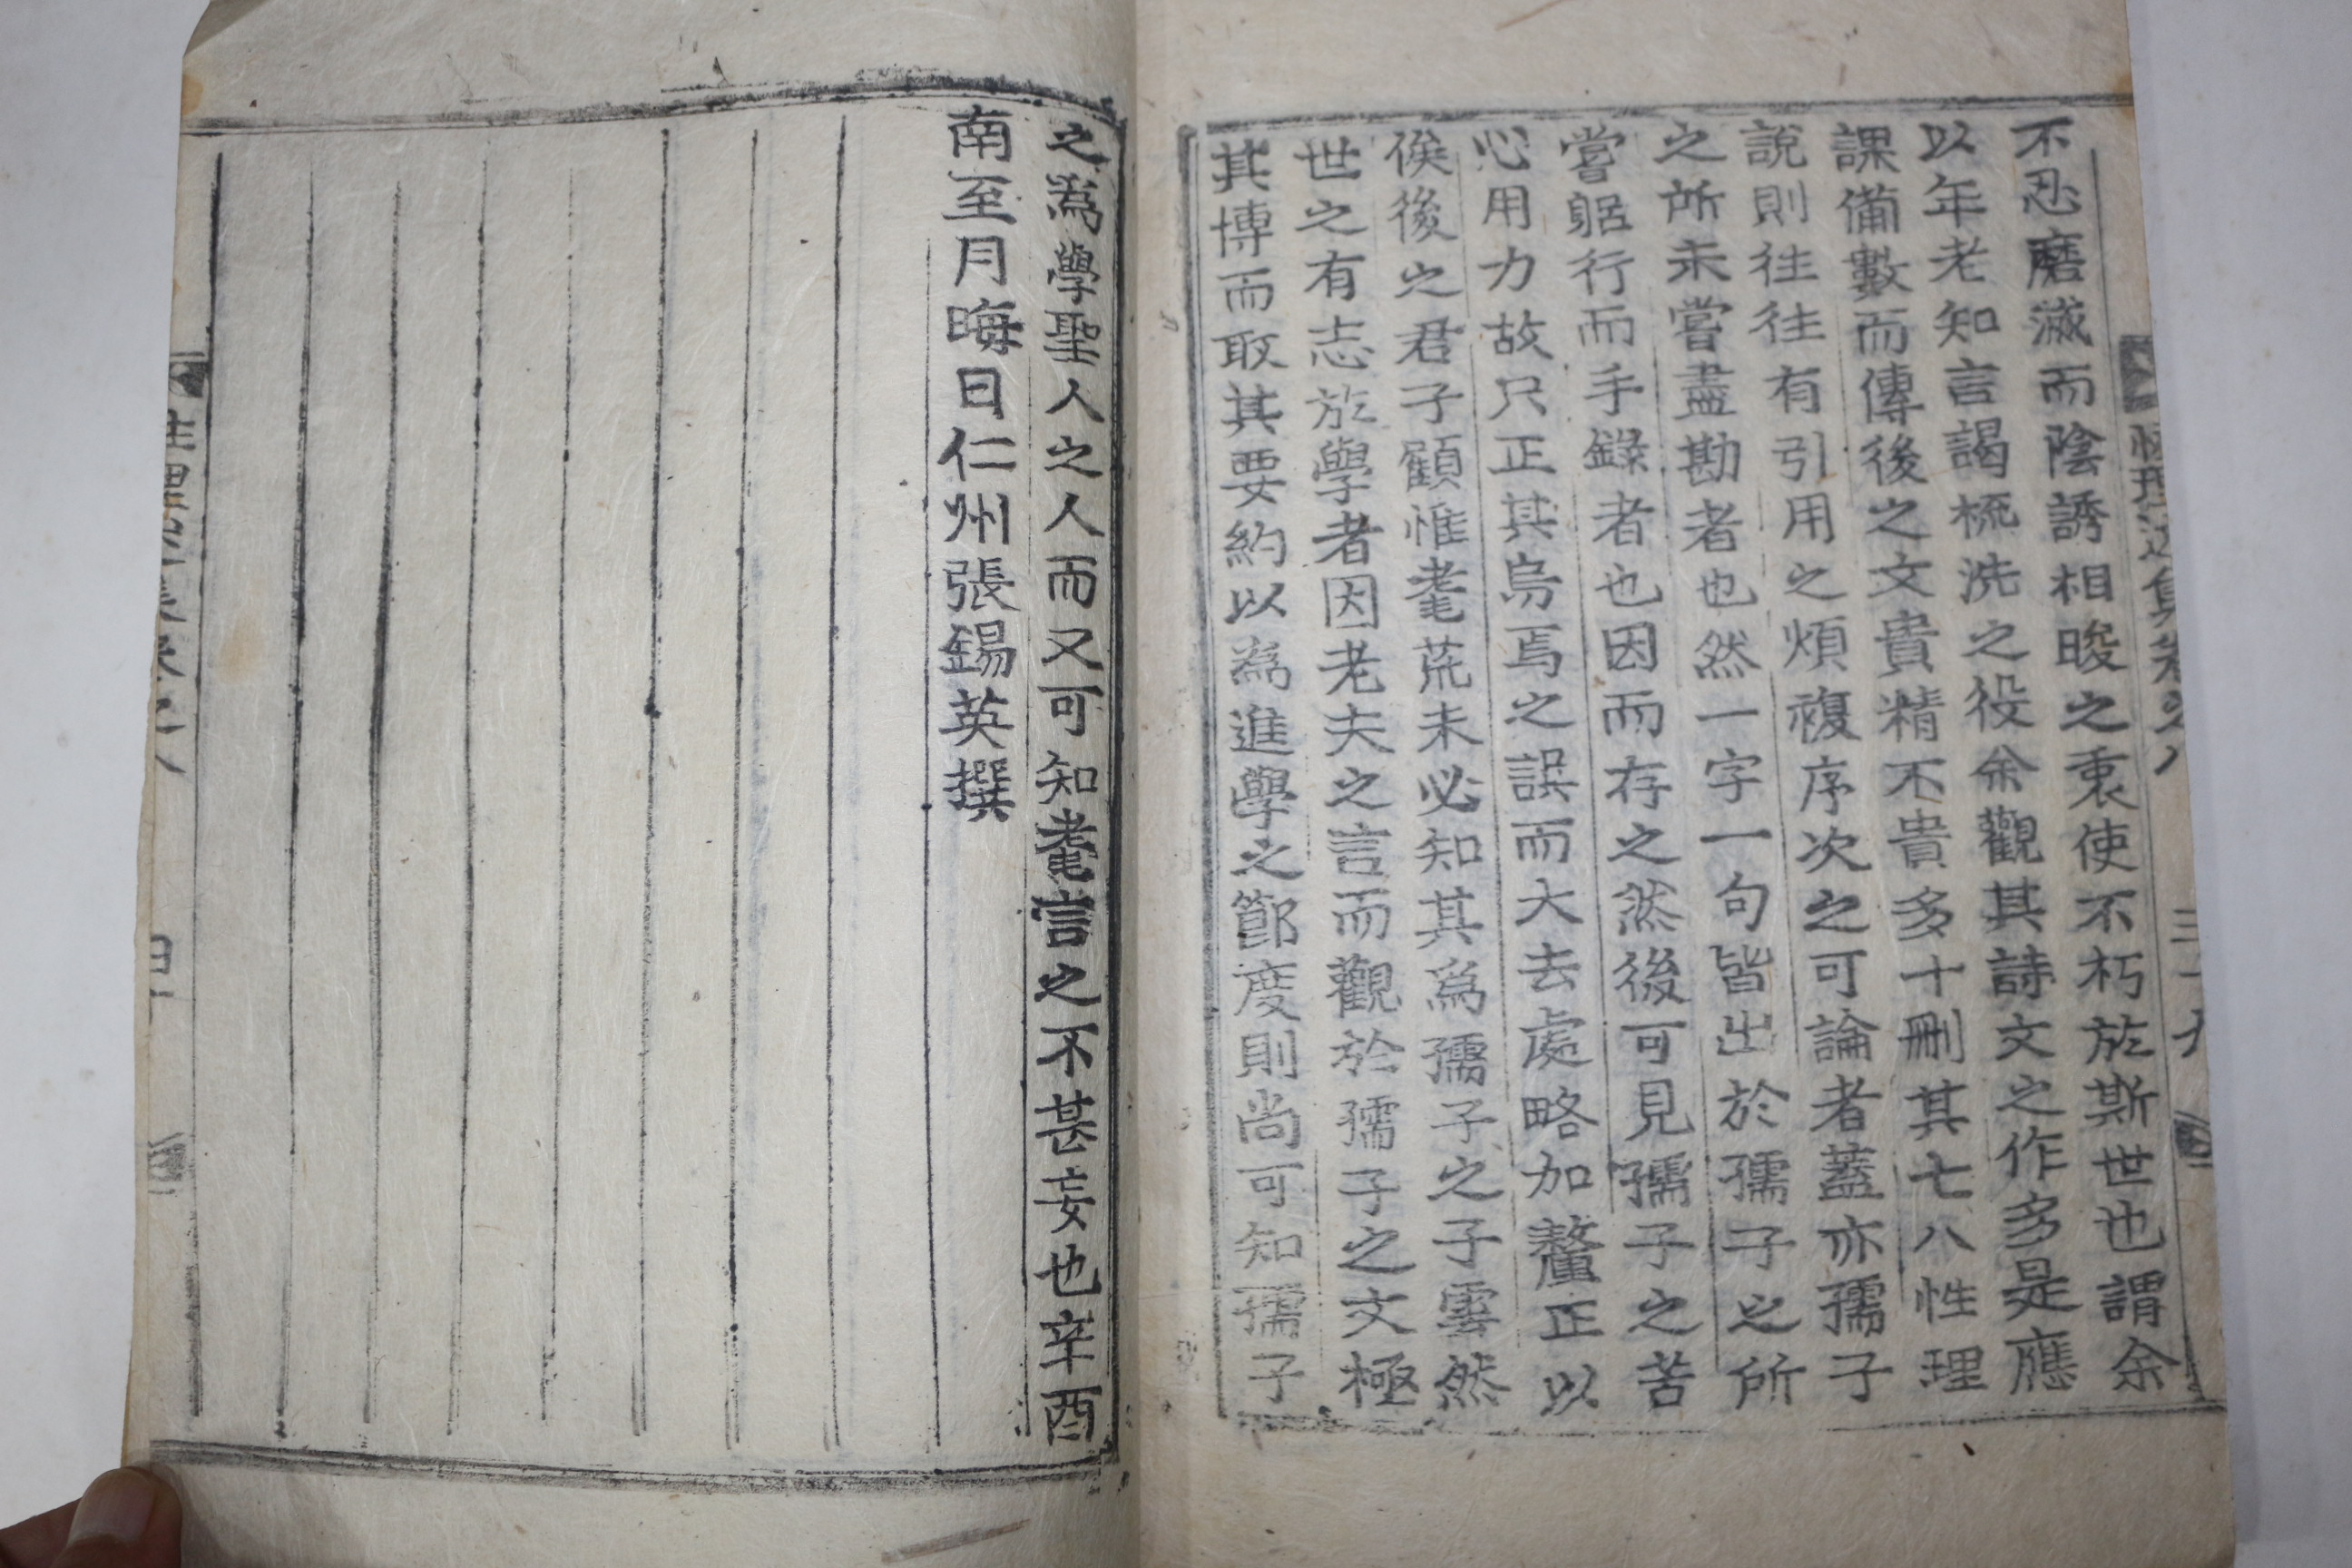 不忍磨滅而陰誘相晙之衷使不朽於斯世也謂余
以年老知言謁梳洗之役余觀其詩文之作多是應
課備數而傳後之文貴精不貴多十刪其七八性理
說則往往有引用之煩複序次之可論者蓋亦孺子
之所未嘗盡勘者也然一字一句皆出於孺子之所
嘗躬行而手錄者也因而存之然後可見孺子之苦
心用力故只正其烏焉之誤而大去處略加釐正以
俟後之君子顧惟耄荒未必知其爲孺子之子雲然
世之有志於學者因老夫之言而觀於孺子之文極
其博而取其要約以爲進學之節度則尚可知孺子
之爲學聖人之人而又可知耄言之不甚妄也辛酉
南至月晦日仁州張錫英撰